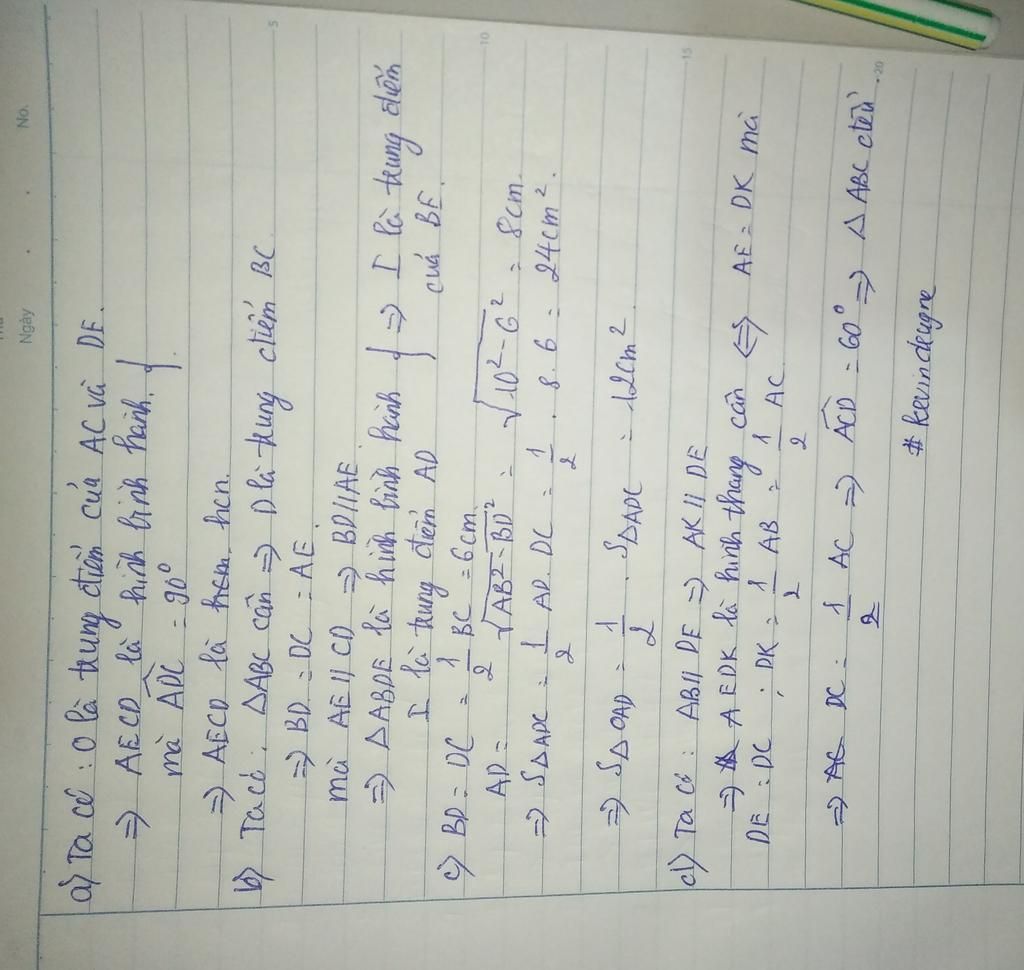 Ngày
No.
a) Ta có : O là trung điểm của AC và DE.
=> AECD là hình bình hành }
mà ADC = 90°
=> AECD là hcn.
b) Ta có : ΔABC cân => D là trung điểm BC.
=> BD = DC = AE
5
mà AE // CD => BD // AE
=> ΔABDE là hình bình hành } => I là trung điểm
I là trung điểm AD
của BE.
c) BD = DC = 1/2 BC = 6cm
10
AD = √AB² - BD² = √10² - 6² = 8cm.
=> SΔADC = 1/2 AD. DC = 1/2 . 8. 6 = 24cm².
=> SΔOAD = 1/2 . SΔADC = 12cm²
d) Ta có : AB // DE => AK // DE
15
=> AEDK là hình thang cân <=> AE = DK mà
DE = DC ; DK = 1/2 AB = 1/2 AC
=> DC = 1/2 AC => ACD = 60° => ΔABC đều.
20
# kevindeugne